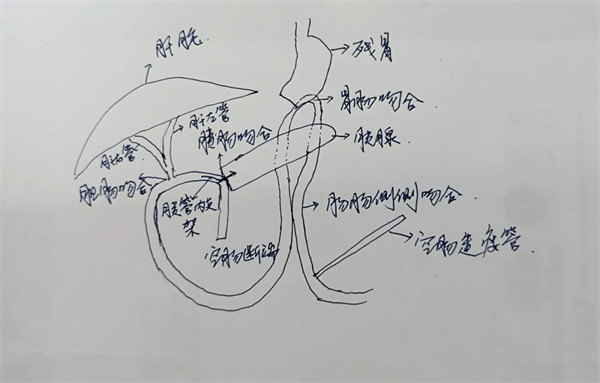 肝脏
残胃
胃肠吻合
肝左管
胰肠吻合
胰腺
肝右管
胆肠吻合
胰管内支
架
肠肠侧侧吻合
空肠断端
空肠造瘘管